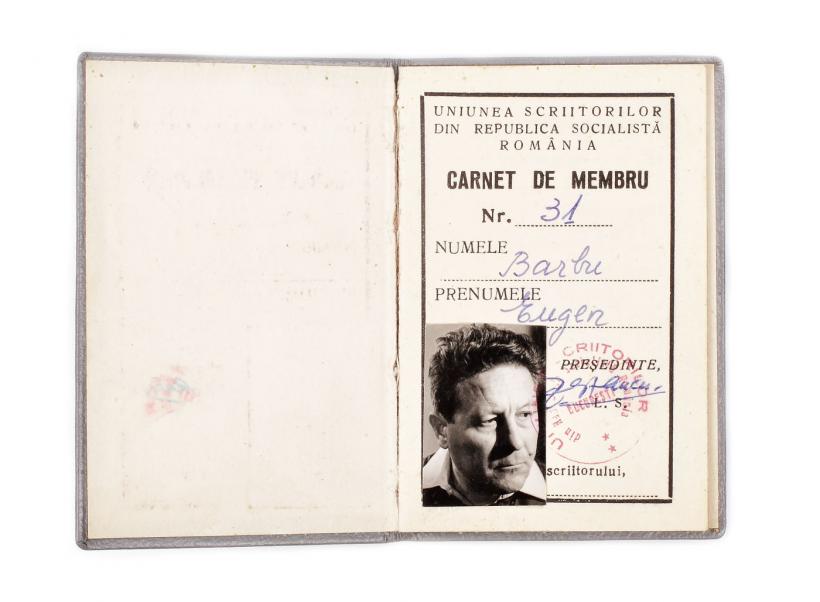 UNIUNEA SCRIITORILOR
DIN REPUBLICA SOCIALISTĂ
ROMÂNIA
CARNET DE MEMBRU
Nr. 31
NUMELE
Barbu
PRENUMELE
Eugen
PREȘEDINTE,
L. S.
BUCUREȘTI
din
scriitorului,